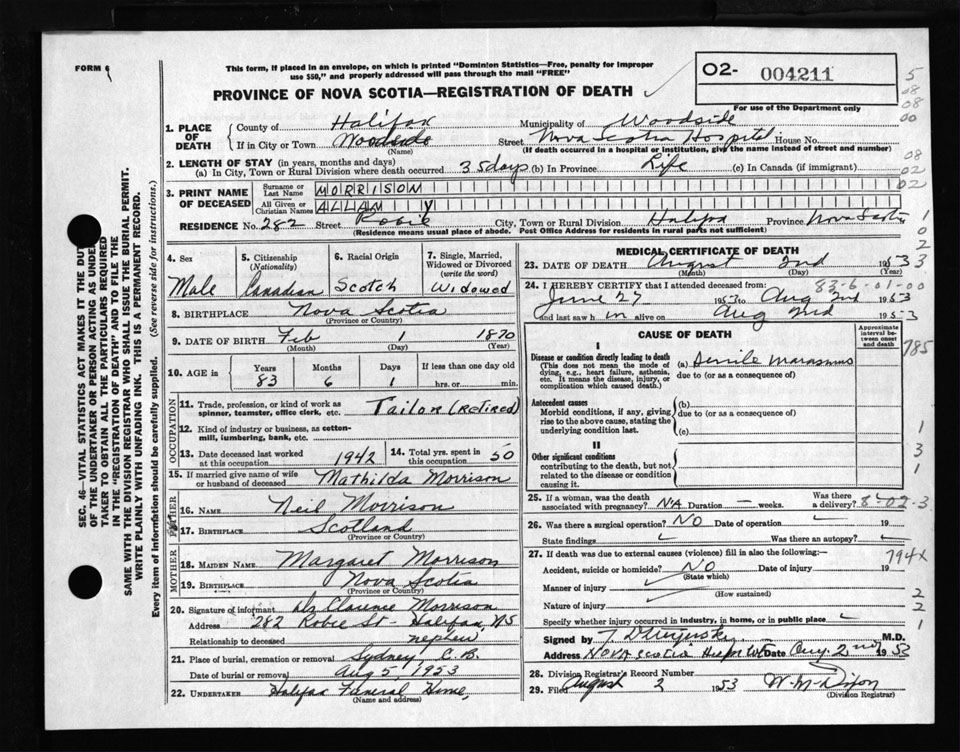 FORM 6
This form, if placed in an envelope, on which is printed "Dominion Statistics—Free, penalty for improper
use $50," and properly addressed will pass through the mail "FREE"
02- 004211
For use of the Department only
PROVINCE OF NOVA SCOTIA—REGISTRATION OF DEATH
1. PLACE OF DEATH
County of Halifax Municipality of Woodside
If in City or Town Woodside Street Nova Scotia Hospital House No.
(Name) (If death occurred in a hospital or institution, give the name instead of street and number)
2. LENGTH OF STAY (in years, months and days)
(a) In City, Town or Rural Division where death occurred 35 days (b) In Province Life (c) In Canada (if immigrant)
3. PRINT NAME OF DECEASED
Surname or Last Name MORRISON
All Given or Christian Names ALLAN
RESIDENCE No. 282 Street Robie City, Town or Rural Division Halifax Province Nova Scotia
(Residence means usual place of abode. Post Office Address for residents in rural parts not sufficient)
4. Sex
Male
5. Citizenship
(Nationality)
Canadian
6. Racial Origin
Scotch
7. Single, Married,
Widowed or Divorced
(write the word)
Widowed
8. BIRTHPLACE Nova Scotia
(Province or Country)
9. DATE OF BIRTH Feb 1 1870
(Month) (Day) (Year)
10. AGE Years Months Days If less than one day old
83 6 1 hrs. or min.
OCCUPATION
11. Trade, profession, or kind of work as
spinner, teamster, office clerk, etc. Tailor (retired)
12. Kind of industry or business, as cotton-
mill, lumbering, bank, etc.
13. Date deceased last worked
at this occupation 1942
14. Total yrs. spent in
this occupation 50
15. If married give name of wife
or husband of deceased Mathilda Morrison
FATHER
16. NAME Neil Morrison
17. BIRTHPLACE Scotland
(Province or Country)
MOTHER
18. MAIDEN NAME Margaret Morrison
19. BIRTHPLACE Nova Scotia
(Province or Country)
20. Signature of informant Clarence Morrison
Address 282 Robie St - Halifax, NS
Relationship to deceased nephew
21. Place of burial, cremation or removal Sydney C.B.
Date of burial or removal Aug 5, 1953
22. UNDERTAKER Halifax Funeral Home,
(Name and address)
MEDICAL CERTIFICATE OF DEATH
23. DATE OF DEATH August 2nd 1953
(Month) (Day) (Year)
83-6-01-00
24. I HEREBY CERTIFY that I attended deceased from:
June 27 1953 to Aug 2nd 1953
and last saw h im alive on Aug 2nd 1953
CAUSE OF DEATH
Approximate
interval be-
tween onset
and death
I
Disease or condition directly leading to death
(This does not mean the mode of
dying, e.g., heart failure, asthenia,
etc. It means the disease, injury, or
complication which caused death.)
(a) Senile Marasmus
due to (or as a consequence of)
Antecedent causes
Morbid conditions, if any, giving
rise to the above cause, stating the
underlying condition last.
(b)
due to (or as a consequence of)
(c)
II
Other significant conditions
contributing to the death, but not
related to the disease or condition
causing it.
25. If a woman, was the death
associated with pregnancy? NA Duration — weeks. Was there
a delivery?
8-02-3
26. Was there a surgical operation? NO Date of operation 19
State findings Was there an autopsy?
27. If death was due to external causes (violence) fill in also the following:—
794X
Accident, suicide or homicide? NO Date of injury 19
(State which)
Manner of injury
(How sustained)
Nature of injury
Specify whether injury occurred in industry, in home, or in public place
Signed by M.D.
Address Nova Scotia Hospital Date Aug 2nd 1953
28. Division Registrar's Record Number
29. Filed August 2 1953
(Division Registrar)
785
SEC. 46—VITAL STATISTICS ACT MAKES IT THE DUTY
OF THE UNDERTAKER OR PERSON ACTING AS UNDER-
TAKER TO OBTAIN ALL THE PARTICULARS REQUIRED
IN THE "REGISTRATION OF DEATH" AND TO FILE THE
SAME WITH THE DIVISION REGISTRAR WHO SHALL ISSUE THE BURIAL PERMIT.
WRITE PLAINLY WITH UNFADING INK. THIS IS A PERMANENT RECORD.
Every item of information should be carefully supplied. (See reverse side for instructions.)